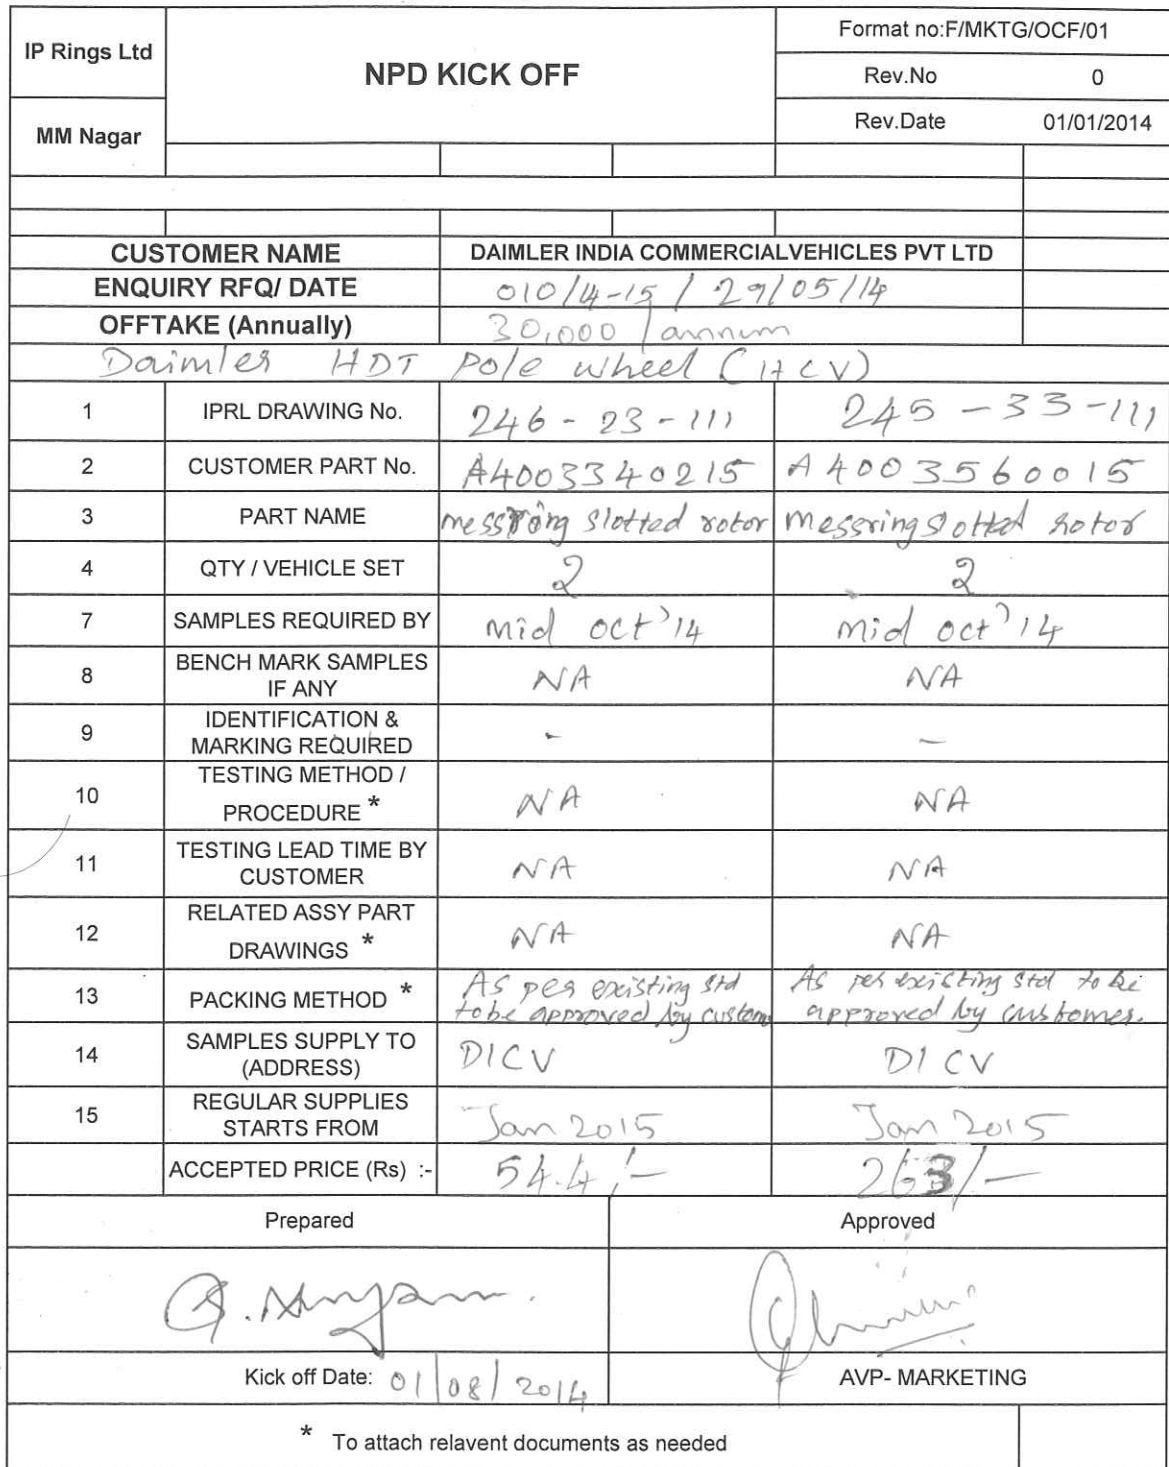 IP Rings Ltd
NPD KICK OFF
Format no:F/MKTG/OCF/01
Rev.No 0
MM Nagar
Rev.Date 01/01/2014
CUSTOMER NAME DAIMLER INDIA COMMERCIALVEHICLES PVT LTD
ENQUIRY RFQ/ DATE 010/14-15 / 29/05/14
OFFTAKE (Annually) 30,000 / annum
Daimler HDT Pole wheel (HCV)
1 IPRL DRAWING No. 246 - 23 - 111 245 - 33 - 111
2 CUSTOMER PART No. A4003340215 A4003560015
3 PART NAME messring slotted rotor messring slotted rotor
4 QTY / VEHICLE SET 2 2
7 SAMPLES REQUIRED BY mid oct'14 mid oct'14
8 BENCH MARK SAMPLES
IF ANY NA NA
9 IDENTIFICATION &
MARKING REQUIRED - -
10 TESTING METHOD /
PROCEDURE * NA NA
11 TESTING LEAD TIME BY
CUSTOMER NA NA
12 RELATED ASSY PART
DRAWINGS * NA NA
13 PACKING METHOD * As per existing std As per existing std to be
to be approved by custom approved by customer.
14 SAMPLES SUPPLY TO
(ADDRESS) DICV DICV
15 REGULAR SUPPLIES
STARTS FROM Jan 2015 Jan 2015
ACCEPTED PRICE (Rs) :- 54.4/- 263/-
Prepared Approved
Kick off Date: 01/08/2014 AVP- MARKETING
* To attach relavent documents as needed